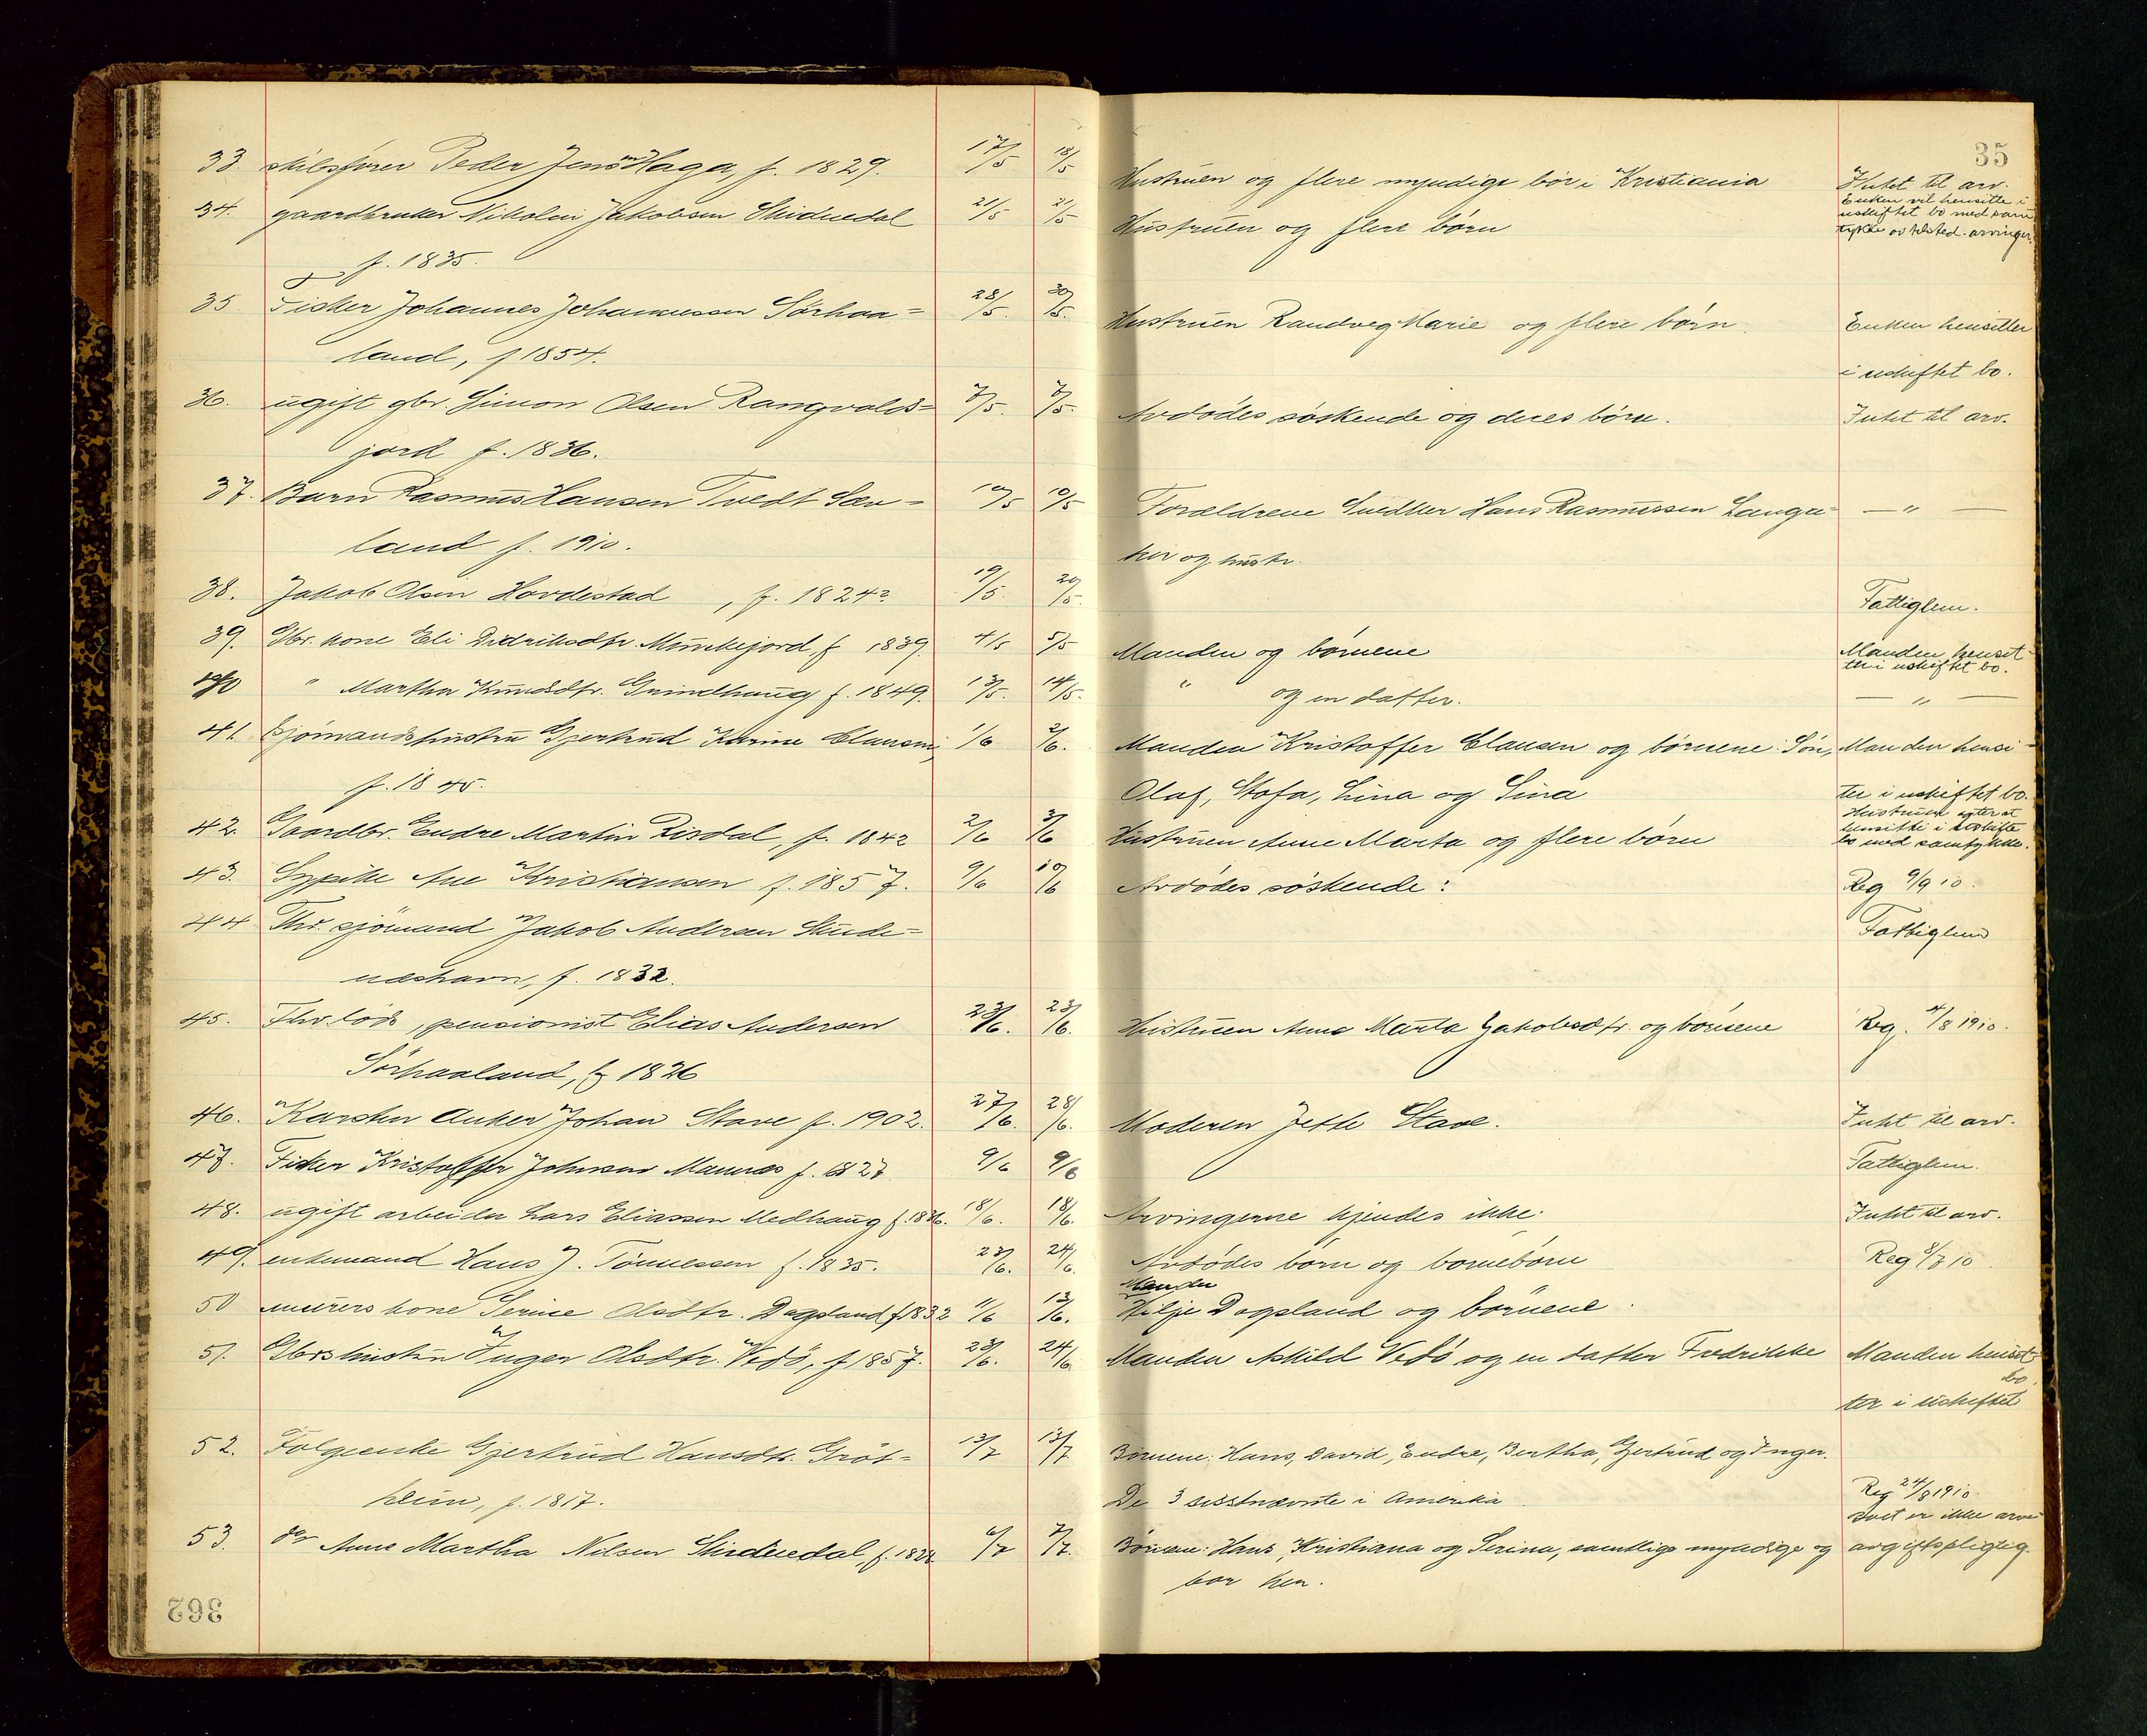 35
33. skibsfører Peder Jensen Haga, f. 1829. 17/5 18/5 Hustruen og flere myndige bør i Kristiania Intet til arv.
34. gaardbruker Nikolai Jakobsen Skidnedal 21/5 21/5 Hustruen og flere børn Enken vil hensitte i
uskiftet bo med sam
tykke av tilsted. arvinger.
f. 1835.
35 Fisker Johannes Johannessen Sørhaa= 28/5. 30/5. Hustruen Randveg Marie og flere børn. Enken hensitter
land, f 1854. i uskiftet bo.
36. ugift gbr. Simon Olsen Rangvalds= 7/5. 7/5. Avdødes søskende og deres børn. Intet til arv.
jord f. 1836.
37. Barn Rasmus Hansen Tvedt Sæv= 10/5 10/5 Forældrene Snedker Hans Rasmussen Langa= — " —
land f. 1910. her og hustr.
38. Jakob Olsen Hordestad , f. 1824? 19/5. 20/5. Fattiglem.
39. Gbr. kone Eli Didriksdtr. Munkejord, f 1839. 4/5 5/5 Manden og børnene Manden hensit-
ter i uskiftet bo.
40 " Martha Knudsdtr. Grindhaug f. 1849. 13/5. 14/5. " og en datter. — " —
41. Sjømandshustru Gjertrud Karine Clausen, 1/6 2/6. Manden Kristoffer Clausen og børnene: Søn, Manden hensi-
f. 1845. Olaf, Stofa, Lina og Sina ter i uskiftet bo.
42. Gaardbr. Endre Martin Risdal, f. 1842 2/6 3/6 Hustruen Anne Marta og flere børn Hustruen agter at
hensitte i uskifte
bo med samtykke.
43. Sypike Ane Kristiansen f. 1857. 9/6 10/6 Avdødes søskende: Reg 9/9 10.
44 Fhv. sjømand Jakob Andersen Skude= Fattiglem
neshavn, f. 1832.
45. Fhv. lods, pensionist Elias Andersen 23/6. 23/6. Hustruen Anna Marta Jakobsdtr. og børnene Reg. 4/8 1910.
Sørhaaland, f 1826
46. Karsten Anker Johan Stave f. 1902. 27/6. 28/6. Moderen Jette Stave. Intet til arv.
47. Fisker Kristoffer Johnsen Mannes f. 1827 9/6 9/6 Fattiglem.
48. ugift arbeider Lars Eliassen Medhaug f. 1836. 18/6. 18/6. Arvingerne kjendes ikke. Intet til arv.
49. enkemand Hans J. Tønnessen f. 1835. 23/6. 24/6. Avdødes børn og børnebørn Reg 8/7 10
50 murers kone Serine Olsdtr. Dagsland f 1832 11/6 13/6. Manden
Hilje Dagsland og børnene.
51. Gbrs hustru Inger Olsdtr. Vedø, f 1857. 23/6. 24/6 Manden Askild Vedø og en datter Fredrikke Manden hensit-
ter i uskiftet bo.
52. Følgeenke Gjertrud Hansdtr. Grøt= 13/7 13/7 Børnene: Hans, David, Endre, Bertha, Gjertrud og Inger.
heim, f. 1817. De 3 sisstnævnte i Amerika Reg 24/8 1910.
53. do Anne Martha Nilsen Skidnedal, f. 1822 6/7 7/7. Børnene: Hans, Kristiana og Serina, samtlige myndige og boet er ikke arve-
bor her. avgiftspligtig
362